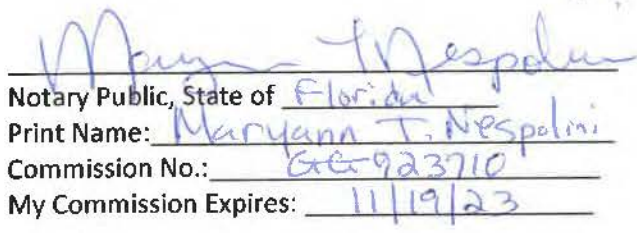 Maryann T Nespolini
Notary Public, State of Florida
Print Name: Maryann T. Nespolini
Commission No.: GG923710
My Commission Expires: 11/19/23